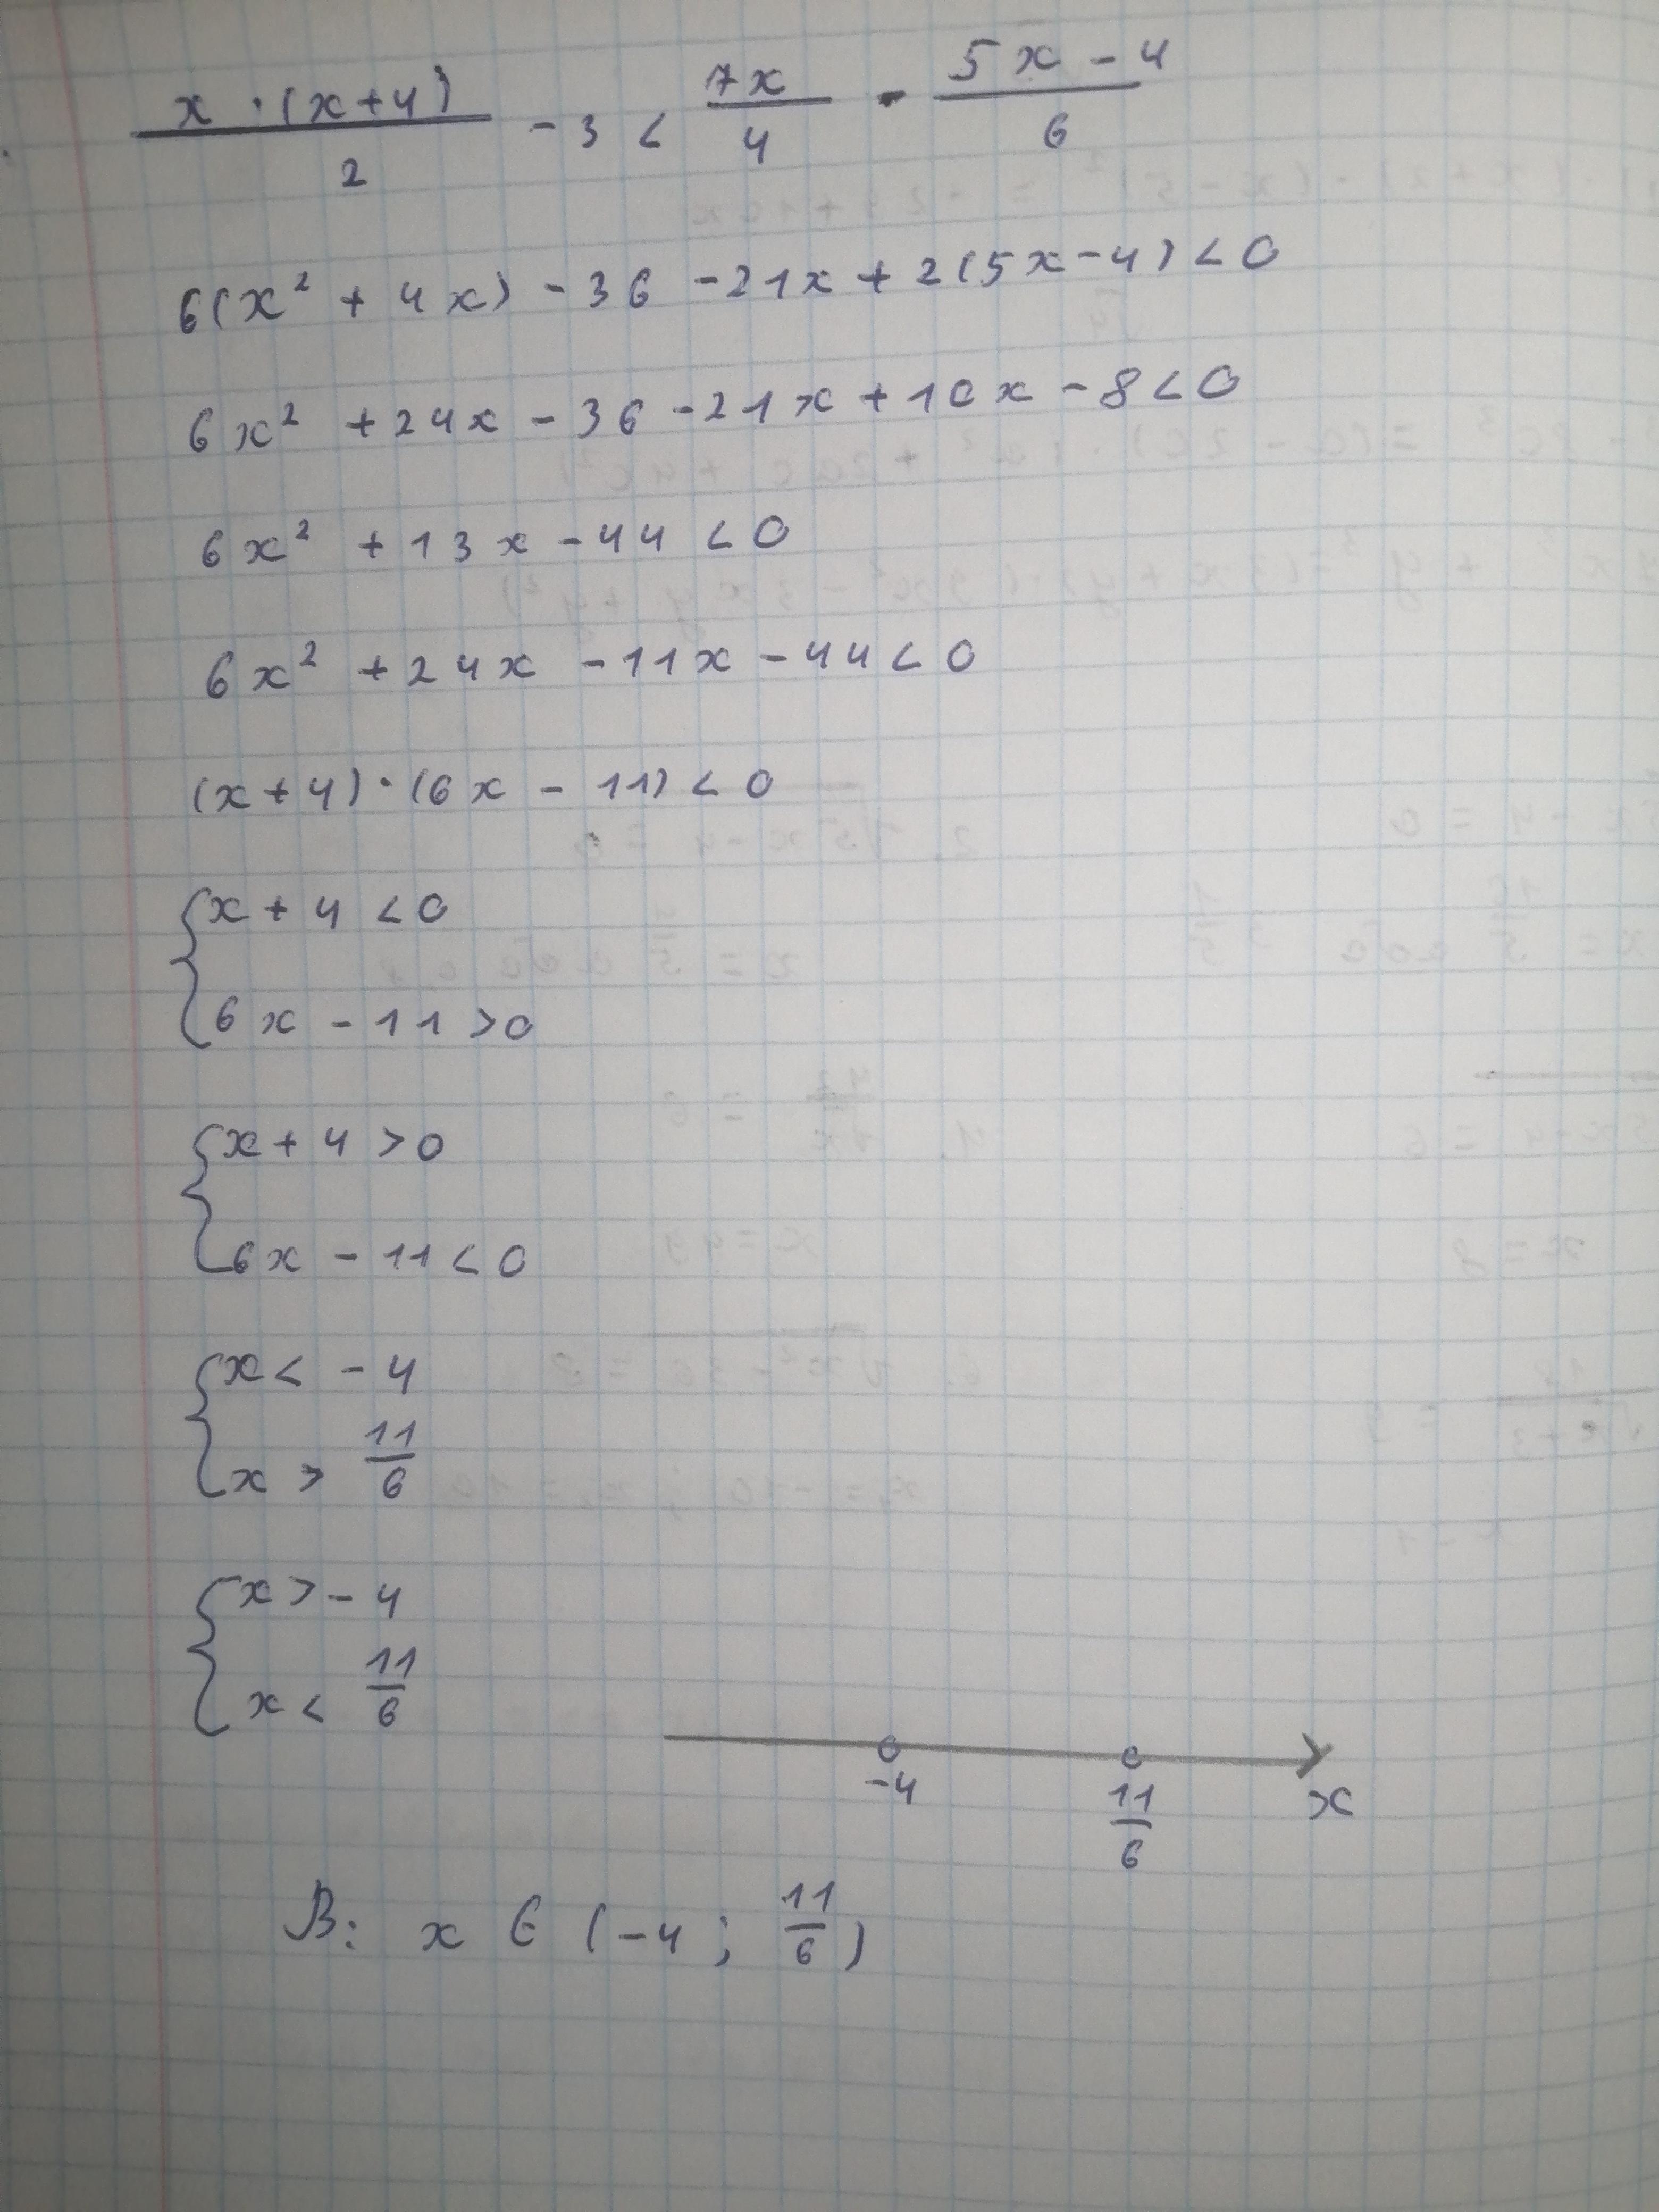 x · (x+4) / 2 - 3 < 7x / 4 - 5x - 4 / 6
6(x² + 4x) - 36 - 21x + 2(5x - 4) < 0
6x² + 24x - 36 - 21x + 10x - 8 < 0
6x² + 13x - 44 < 0
6x² + 24x - 11x - 44 < 0
(x + 4) · (6x - 11) < 0
{ x + 4 < 0
6x - 11 > 0
{ x + 4 > 0
6x - 11 < 0
{ x < - 4
x > 11/6
{ x > - 4
x < 11/6
-4 11/6 x
В: x ∈ (-4 ; 11/6)